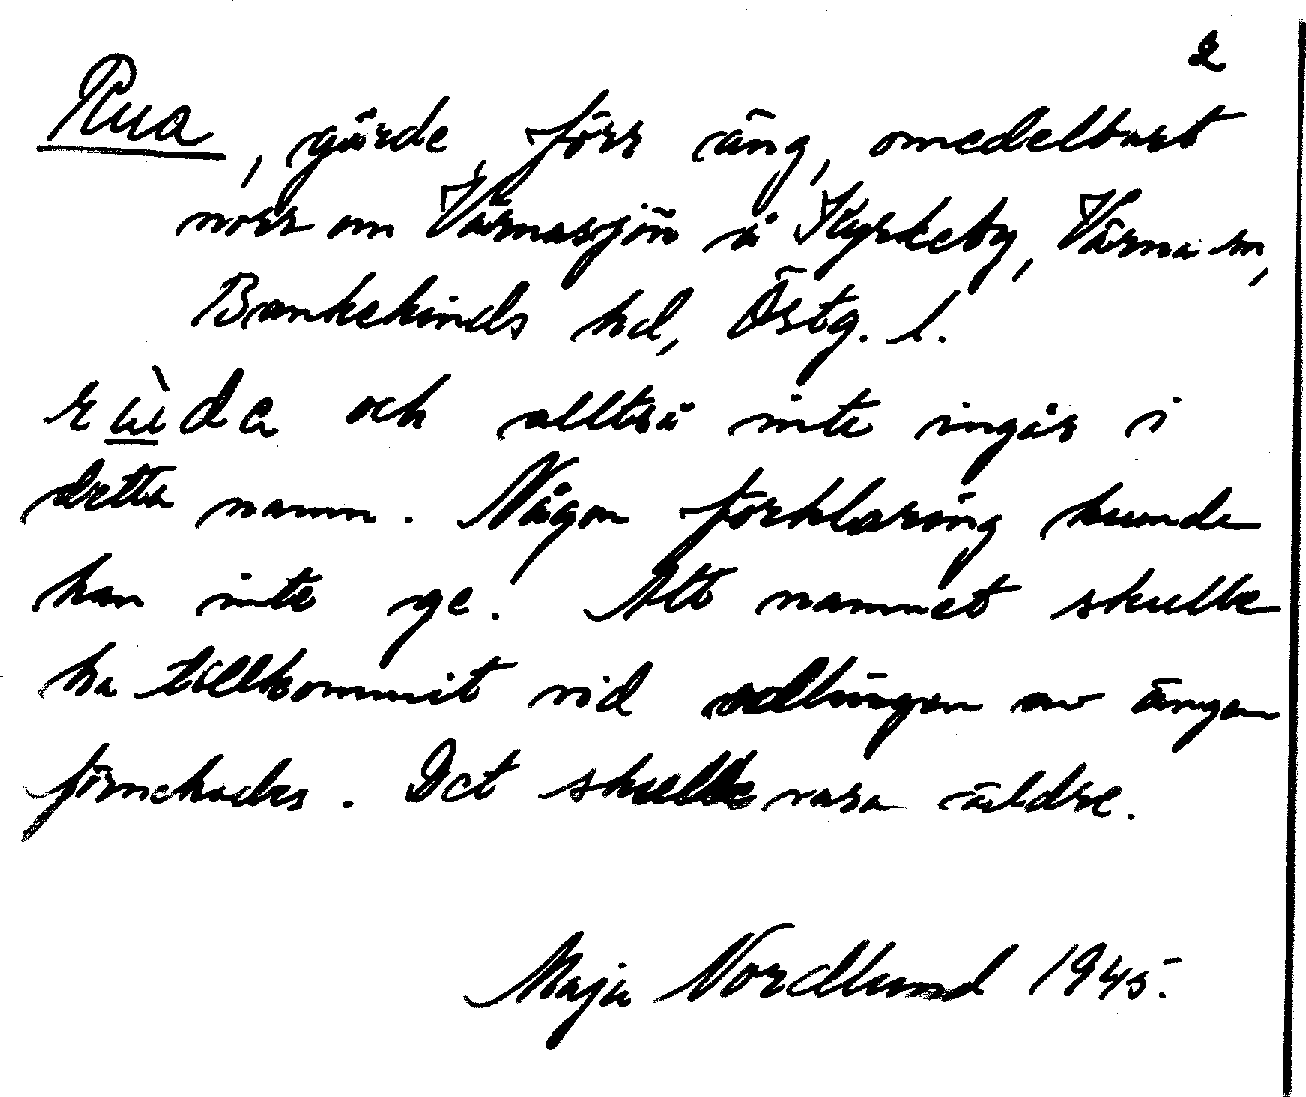 2
Rua, gärde, förr äng, omedelbart
norr om Värnasjön å Kyrkeby, Värna sn,
Bankekinds hd, Östg. l.
rùda och alltså inte ingår i
detta namn. Någon förklaring kunde
han inte ge. Att namnet skulle
ha tillkommit vid odlingen av ängen
förnekades. Det skulle vara äldre.
Maja Nordlund 1945.